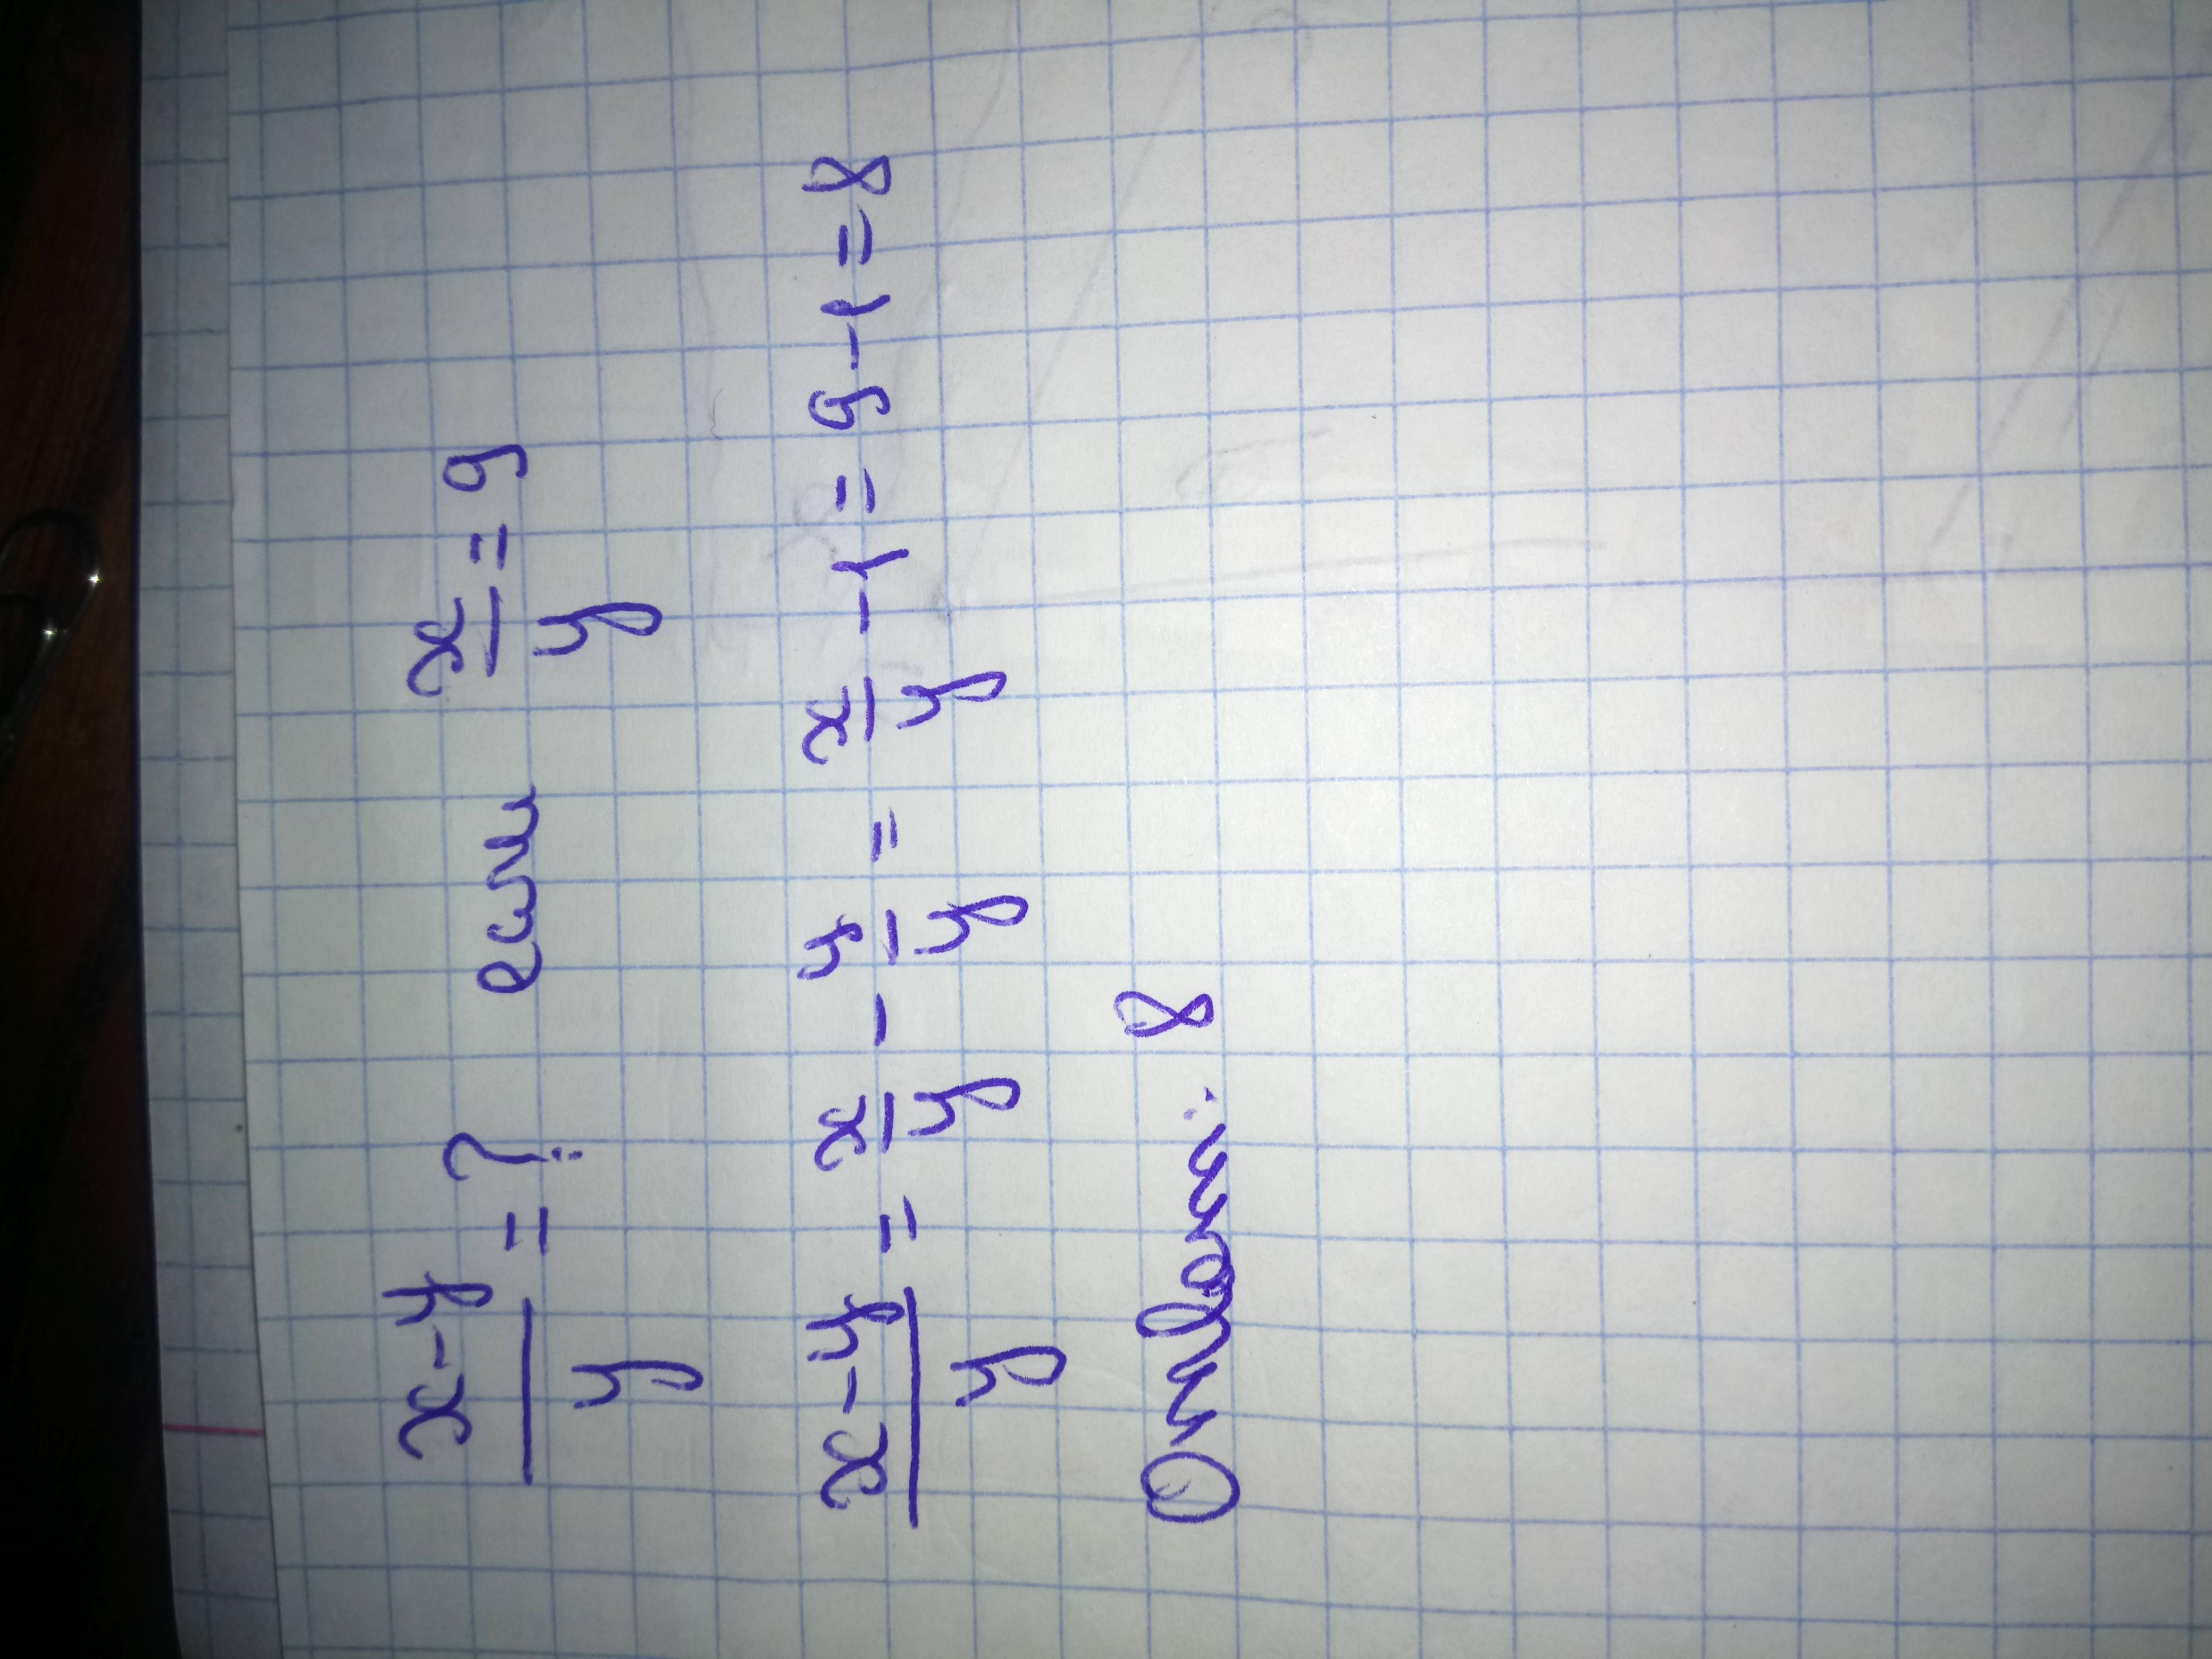 x-y/y = ? если x/y = 9
x-y/y = x/y - y/y = x/y - 1 = 9 - 1 = 8
Ответ: 8